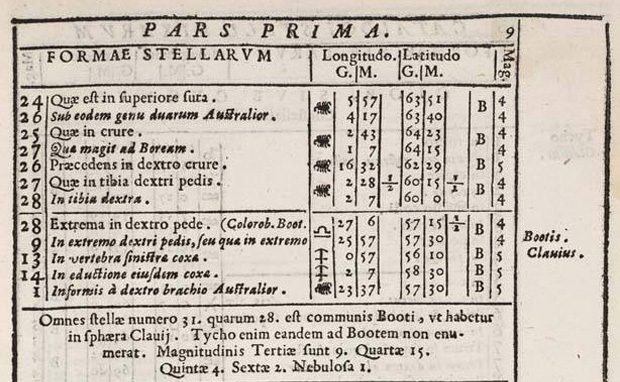 PARS PRIMA. 9
FORMAE STELLARVM Longitudo. Latitudo Mag.
G. M. G. M.
24 Quæ est in superiore sura. 5 57 63 51 B 4
26 Sub eodem genu duarum Australior. 4 17 63 40 4
25 Quæ in crure. 2 43 64 23 B 4
27 Quæ magit ad Boream. 1 7 64 15 4
26 Præcedens in dextro crure. 16 32 62 29 B 5
27 Quæ in tibia dextri pedis. 2 28 1/2 60 15 1/2 B 4
28 In tibia dextra. 2 7 60 0 4
28 Extrema in dextro pede. (Colorob. Boot. ♎ 27 6 57 15 1/2 B 4
9 In extremo dextri pedis, seu qua in extremo 25 57 57 30 4 Bootis.
13 In vertebra sinistræ coxæ. 0 57 56 10 B 5 Clauius.
14 In eductione eiusdem coxæ. 2 7 58 30 B 5
1 Informis à dextro brachio Australior. 23 37 57 30 B 5
Omnes stellæ numero 31. quarum 28. est communis Booti, vt habetur
in sphæra Clauij. Tycho enim eandem ad Bootem non enu-
merat. Magnitudinis Tertiæ sunt 9. Quartæ 15.
Quintæ 4. Sextæ 2. Nebulosa 1.